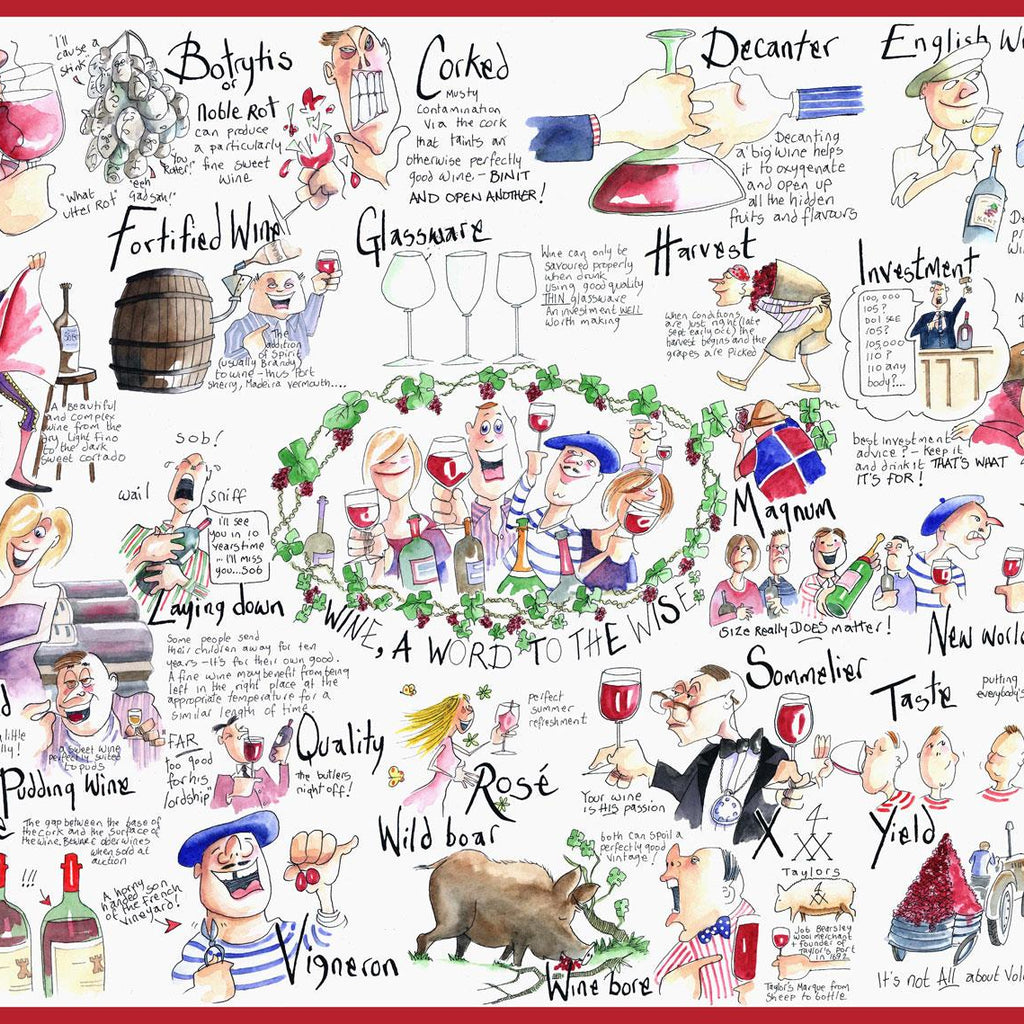 "I'll
cause a
stink"
Botrytis
or
Noble Rot
can produce
a particularly
fine sweet
wine
"You
Rotter!"
"eeh
Gadsah!"
"What
utter Rot
Corked
Musty
contamination
via the cork
that taints an
otherwise perfectly
good wine - BIN IT
AND OPEN ANOTHER!
Decanter
Decanting
a 'big' wine helps
it to oxygenate
and open up
all the hidden
fruits and flavours
English W
KENT
Fortified Wine
The
addition
of Spirit
(usually Brandy)
to wine - thus Port
Sherry, Madeira vermouth....
Glassware
Wine can only be
savoured properly
when drunk
using good quality
THIN glassware
An investment WELL
worth making
Harvest
When conditions
are just right (late
sept early oct) the
harvest begins and the
grapes are picked
Investment
100,000
105?
Do I see
105?
105,000
110?
110 any
body?...
best investment
advice? - keep it
and drink it THAT'S WHAT
IT'S FOR!
A Beautiful
and complex
wine from the
dry light fino
to the dark
sweet cortado
sob!
wail
sniff
i'll see
you in 10
years time
... I'll miss
you...sob
Laying down
Some people send
their children away for ten
years - it's for their own good.
A fine wine may benefit from being
left in the right place at the
appropriate temperature for a
similar length of time.
WINE, A WORD TO THE WISE
Magnum
Size Really DOES matter!
New World
a little
a sweet wine
perfectly suited
to puds
Pudding Wine
"FAR
too good
for his
lordship"
Quality
the butlers
night off!
perfect
summer
refreshment
Rosé
Sommelier
Your wine
is HIS passion
Taste
putting
everybody's
The gap between the base of
the cork and the surface of
the wine. Beware older wines
when sold at
auction
!!!
A horny
handed son
of the french
vineyard!
Vigneron
Wild boar
both can spoil a
perfectly good
vintage!
Wine bore
X
Taylors
Job Bearsley
wool merchant
+ founder of
Taylor's Port
in 1692
Taylor's Marque from
sheep to bottle
Yield
It's not All about Vol